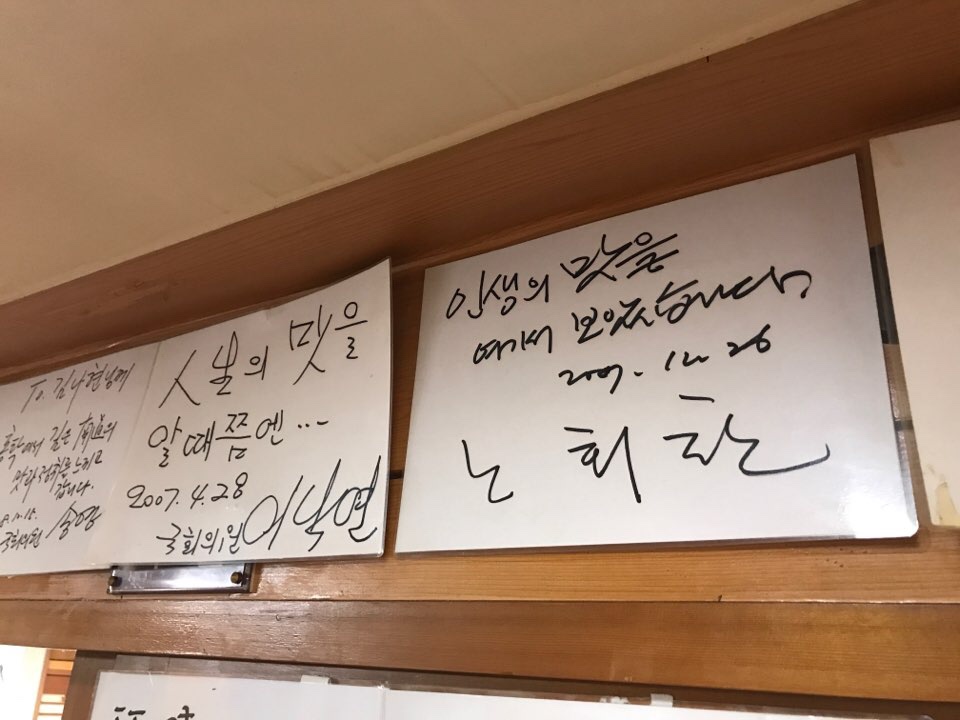 To. 김나현님께
홍학에서 깊은 南道의
맛과 정취를 느끼고
갑니다.
국회의원
人生의 맛을
알 때쯤엔...
2007. 4. 28
국회의원 이낙연
인생의 맛을
여기서 보았습니다.
12 26
노 회 찬